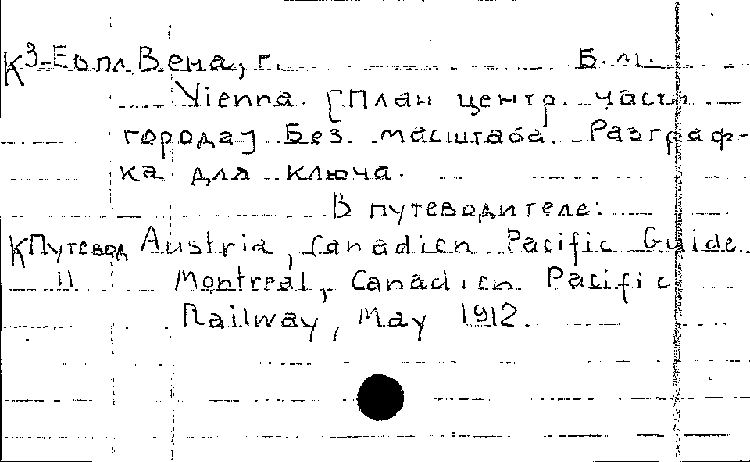 К 3-Евпл Вена, г. Б.м.
Vienna. [План центр. части
города] Без масштаба. Разграф-
ка для ключа.
В путеводителе:
К Путевод Austria, Canadien Pacific Guide
11 Montreal, Canadien Pacific
Railway, May 1912.